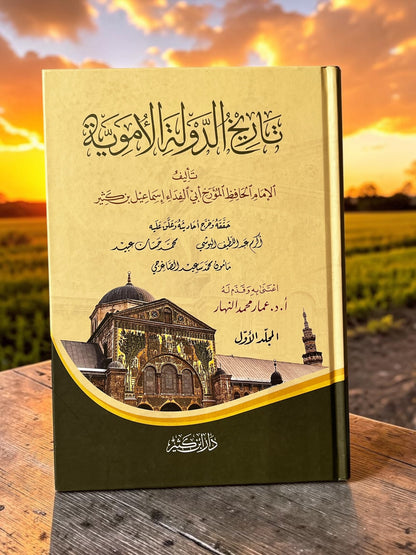 تاريخ الدولة الأموية
تأليف
الإمام الحافظ المؤرخ أبي الفداء إسماعيل بن كثير
حققه وخرج أحاديثه وعلق عليه
أكرم عبد اللطيف البوشي
محمد حسان عبيد
مأمون محمد سعيد الصاغرجي
اعتنى به وقدم له
أ.د. عمار محمد النهار
المجلد الأول
دار ابن كثير